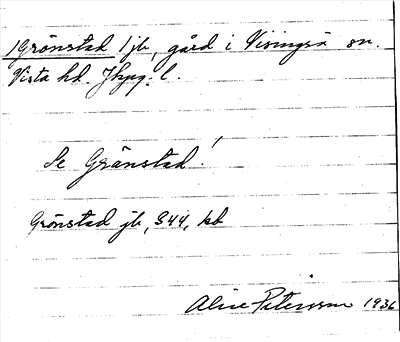 1 Grönstad 1 jb, gård i Visingsö sn.
Vista hd. Jkpg. l.
Se Gränstad!
Grönstad jb, 344, kb
Alice Petersson 1936